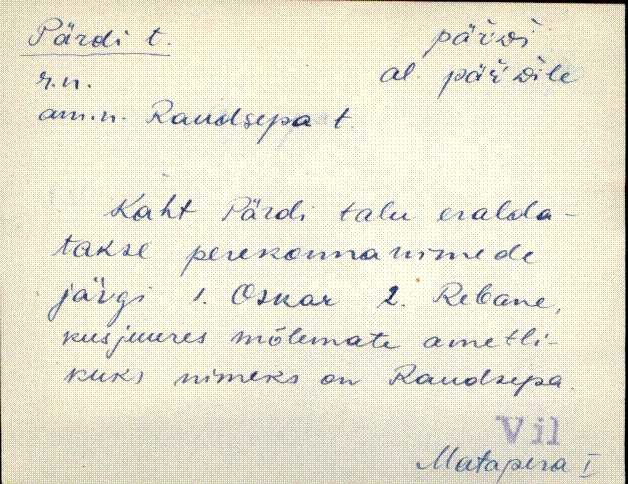 Pärdi t.
pär̀Di
r.n.
al pär̀Dile
am.n. Raudsepa t.
Kaht Pärdi talu eralda-
takse perekonnanimede
järgi 1. Oskar 2. Rebane,
kusjuures mõlemate ametli-
kuks nimeks on Raudsepa.
Vil
Matapera I